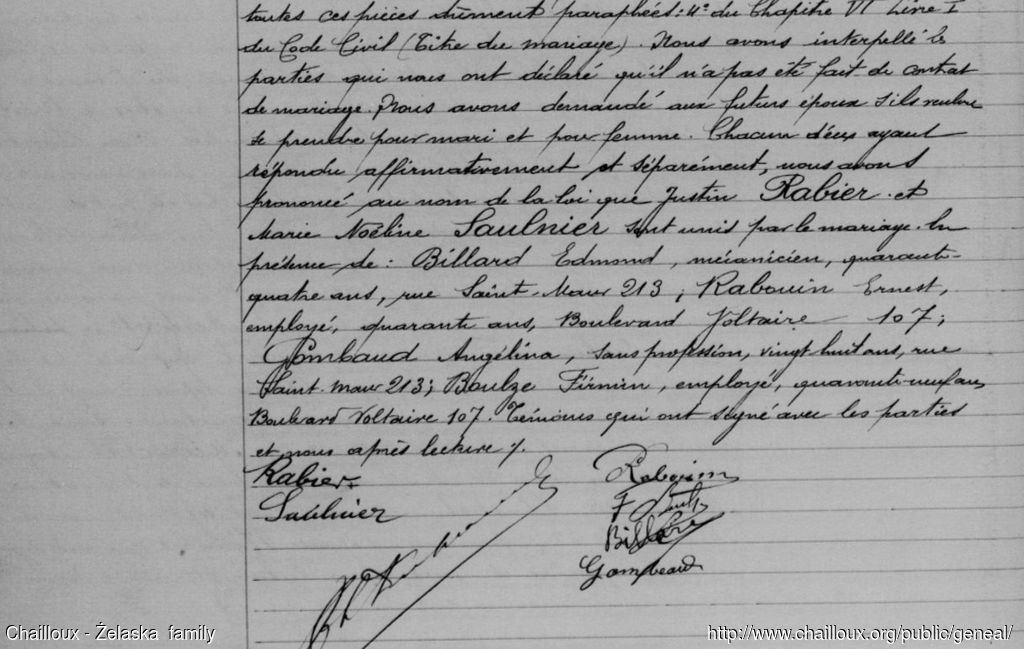 toutes ces pièces dûment paraphées: 4° du Chapitre VI Livre I
du Code Civil (Titre du mariage). Nous avons interpellé les
parties qui nous ont déclaré qu'il n'a pas été fait de contrat
de mariage. Nous avons demandé aux futurs époux s'ils veulent
se prendre pour mari et pour femme. Chacun d'eux ayant
répondu affirmativement et séparément, nous avons
prononcé au nom de la loi que Justin Rabier et
Marie Noëline Saulnier sont unis par le mariage. En
présence de: Billard Edmond, mécanicien, quarante-
quatre ans, rue Saint-Maur 213; Rabouin Ernest,
employé, quarante ans, Boulevard Voltaire 107;
Gombaud Angélina, sans profession, vingt huit ans, rue
Saint-Maur 213; Boulze Firmin, employé, quarante-neuf ans,
Boulevard Voltaire 107. Témoins qui ont signé avec les parties
et nous après lecture %.
Rabier
Saulnier
Rabouin
F
Billard
Gombeaud
Chailloux - Żelaska family
http://www.chailloux.org/public/geneal/